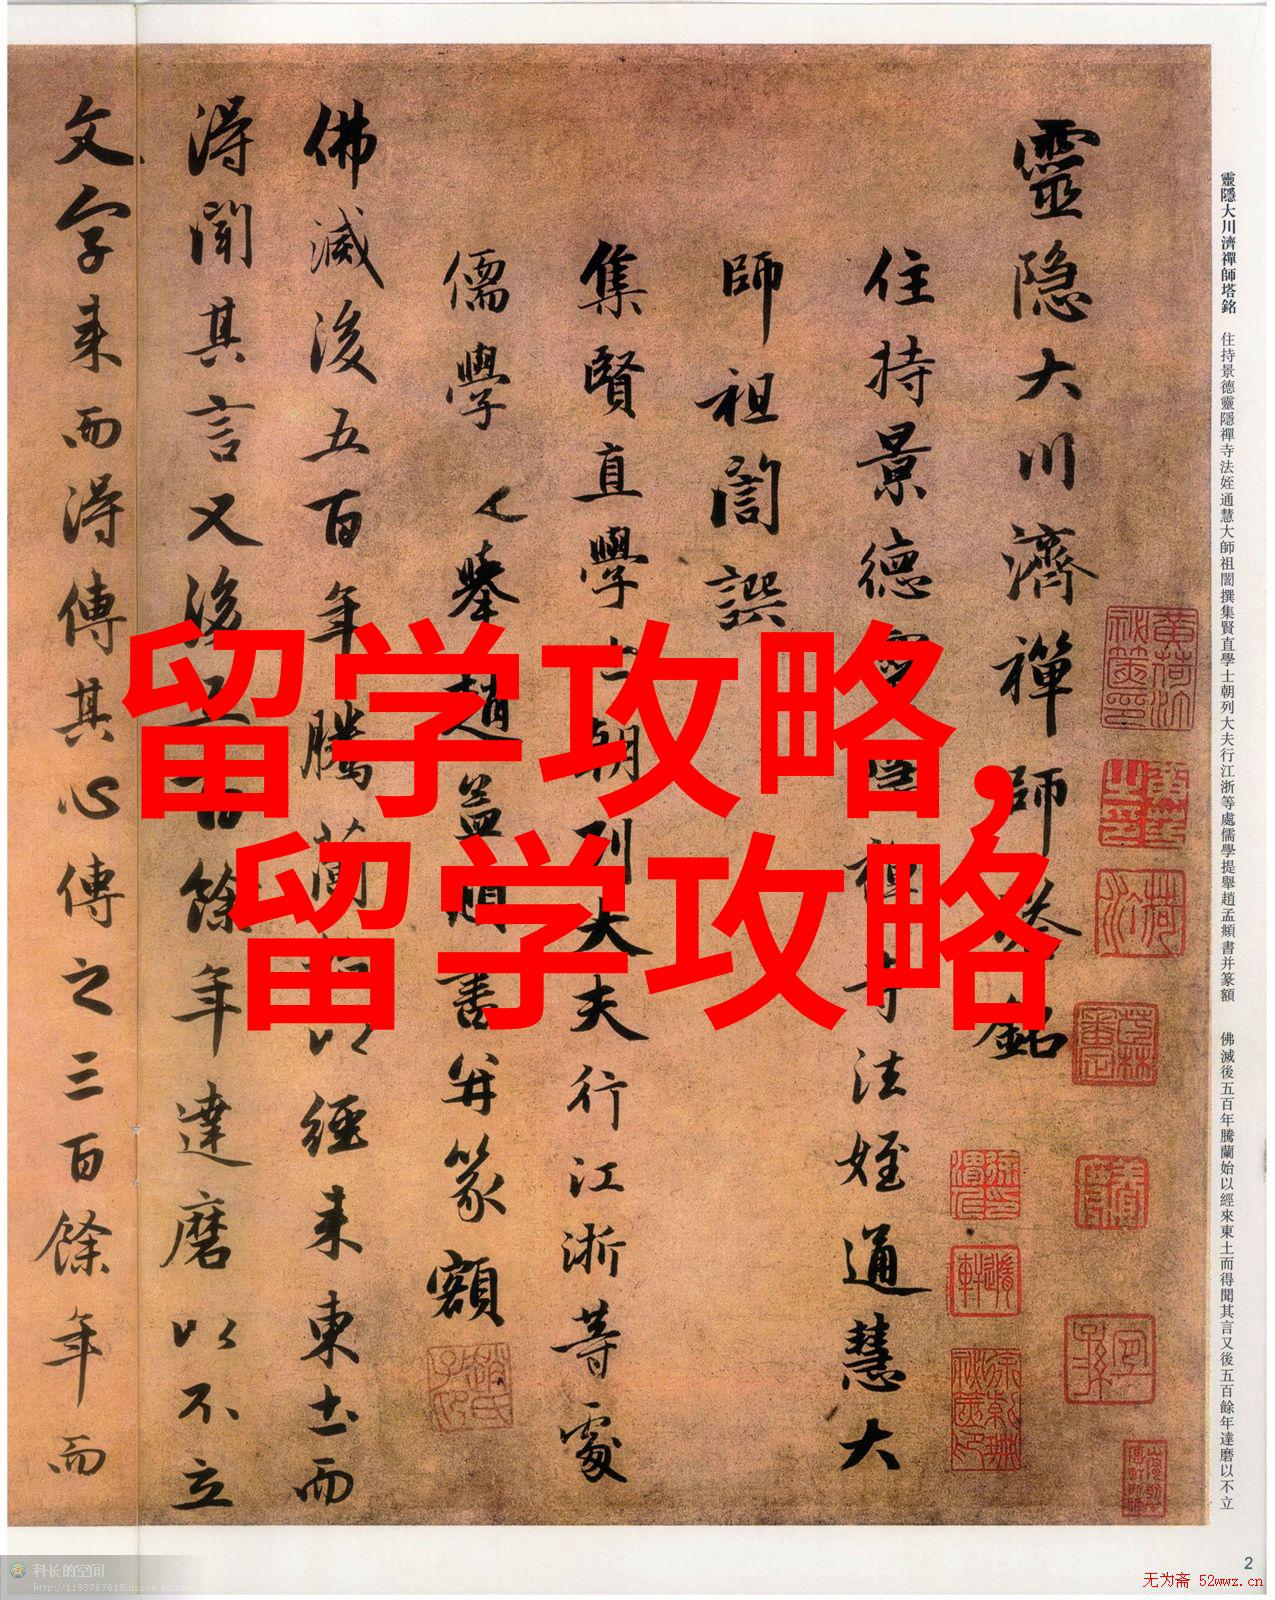 靈隱大川濟禪師塔銘
住持景德靈隱禪寺法姪通慧大
師祖誾譔
集賢直學士朝列大夫行江浙等處
儒學提舉趙孟頫書并篆額
佛滅後五百年騰蘭始以經来東土而
得聞其言又後五百餘年達磨以不立
文字来而得傳其心傳之三百餘年而
靈隱大川濟禪師塔銘 住持景德靈隱禪寺法姪通慧大師祖誾撰集賢直學士朝列大夫行江浙等處儒學提舉趙孟頫書并篆額 佛滅後五百年騰蘭始以經來東土而得聞其言又後五百餘年達磨以不立
留学攻略,
留学攻略
科长的空间
http://1193767618.qzone.qq.com
2
无为斋 52wwz.cn